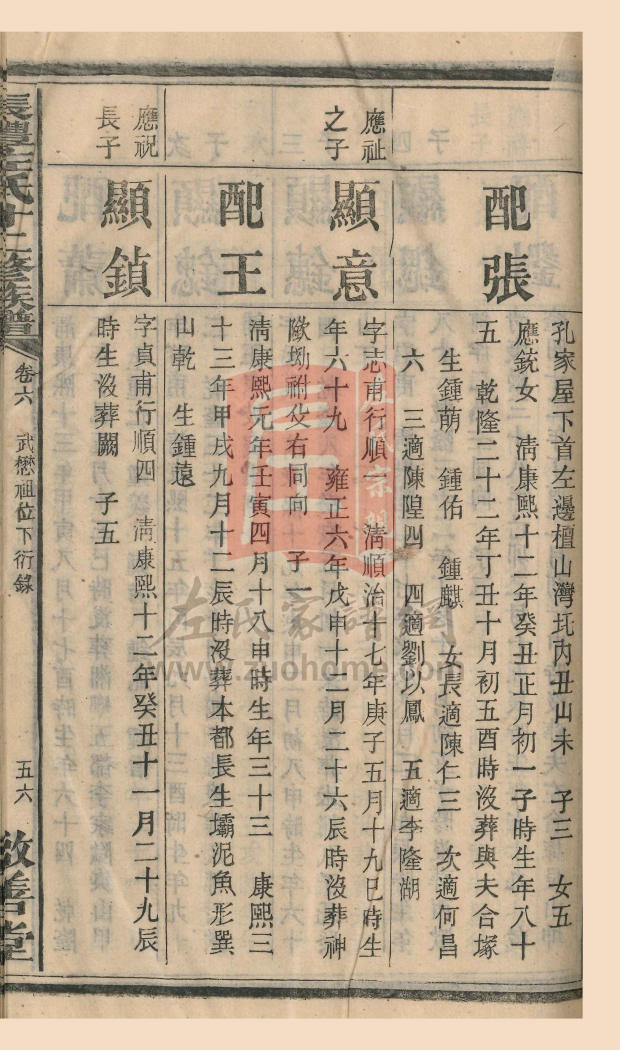 孔家屋下首左邊檀山灣圫內丑山未　子三　女五
配張
應銃女　淸康熙十二年癸丑正月初一子時生年八十
五　乾隆二十二年丁丑十月初五酉時沒葬與夫合塚
生鍾萌　鍾佑　鍾麒　女長適陳仁三　次適何昌
六　三適陳隍四　四適劉以鳳　五適李隆湖
應祉之子
顯意
字志甫行順一　淸順治十七年庚子五月十九巳時生
年六十九　雍正六年戊申十二月二十六辰時沒葬神
歐坳祔父右同向　子一
配王
淸康熙元年壬寅四月十八申時生年三十三　康熙三
十三年甲戌九月十二辰時沒葬本都長生壩泥魚形巽
山乾　生鍾遠
應祝長子
顯鎮
字貞甫行順四　淸康熙十二年癸丑十一月二十九辰
時生沒葬闕　子五
長灃左氏十二修族譜
卷六　武懋祖位下衍錄
五六
敬善堂
左氏家譜網
www.zuohome.com